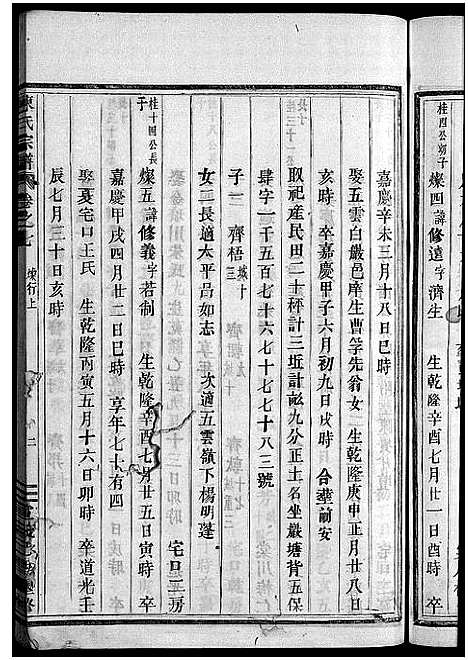 桂四公幼子
燦四諱修遠字濟生 生乾隆辛酉七月廿一日酉時 卒
嘉慶辛未三月十八日巳時
娶五雲白嚴邑庠生曹孚先翁女 生乾隆庚申正月廿八日
亥時 卒嘉慶甲子六月初九日戌時 合葬前安
取祀產民田二十秤計三坵計畝九分正土名坐嚴塘背五保
肆字一千五百七十六七十七七十八三號
子一 齊梧 城十三
女二長適太平呂如志 次適五雲嶺下楊明蓬
桂十四公長子
燦五諱修義字若制 生乾隆辛酉七月廿五日寅時 卒
嘉慶甲戌四月廿二日巳時 享年七十有四 宅口三房
娶夏宅口王氏 生乾隆丙寅五月十六日卯時 卒道光壬
辰七月三十日亥時
陳氏宗譜 卷之七 燦行上 二